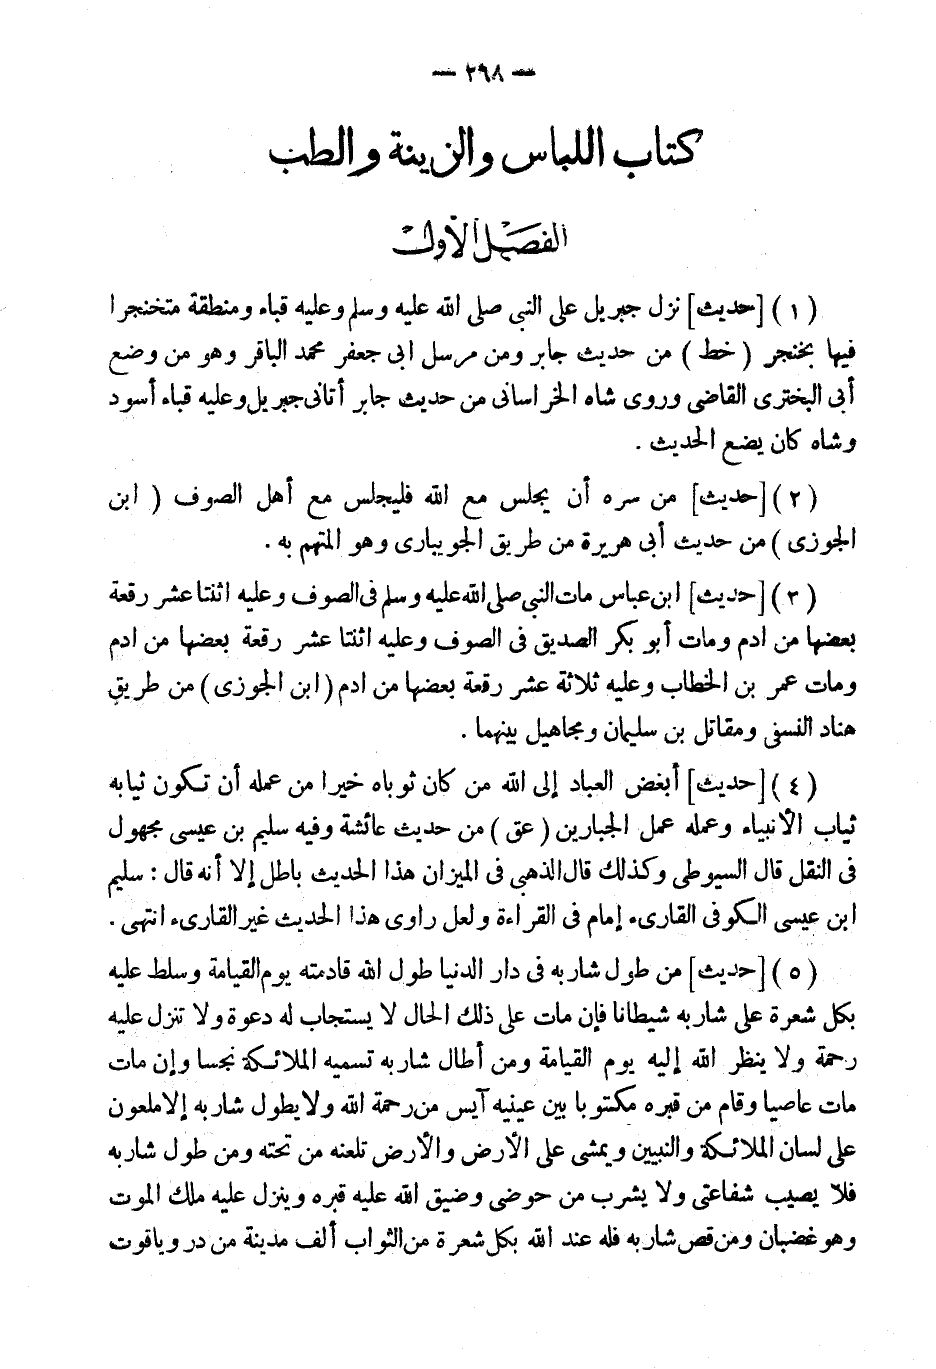 — ٢٦٨ —
كتاب اللباس والزينة والطب
الفصل الأول
( ١ ) [حديث] نزل جبريل على النبي صلى الله عليه وسلم وعليه قباء ومنطقة متخنجرا
فيها بخنجر ( خط ) من حديث جابر ومن مرسل ابى جعفر محمد الباقر وهو من وضع
أبى البخترى القاضى وروى شاه الخراسانى من حديث جابر أتانى جبريل وعليه قباء أسود
وشاه كان يضع الحديث .
( ٢ ) [حديث] من سره أن يجلس مع الله فليجلس مع أهل الصوف ( ابن
الجوزى ) من حديث أبى هريرة من طريق الجويبارى وهو المتهم به .
( ٣ ) [حديث] ابن عباس مات النبى صلى الله عليه وسلم فى الصوف وعليه اثنتا عشر رقعة
بعضها من ادم ومات أبو بكر الصديق فى الصوف وعليه اثنتا عشر رقعة بعضها من ادم
ومات عمر بن الخطاب وعليه ثلاثة عشر رقعة بعضها من ادم ( ابن الجوزى ) من طريق
هناد النسفى ومقاتل بن سليمان ومجاهيل بينهما .
( ٤ ) [حديث] أبغض العباد إلى الله من كان ثوباه خيرا من عمله أن تكون ثيابه
ثياب الأنبياء وعمله عمل الجبارين ( عق ) من حديث عائشة وفيه سليم بن عيسى مجهول
فى النقل قال السيوطى وكذلك قال الذهبى فى الميزان هذا الحديث باطل إلا أنه قال : سليم
ابن عيسى الكوفى القارىء إمام فى القراءة ولعل راوى هذا الحديث غير القارىء انتهى .
( ٥ ) [حديث] من طول شاربه فى دار الدنيا طول الله قادمته يوم القيامة وسلط عليه
بكل شعرة على شاربه شيطانا فإن مات على ذلك الحال لا يستجاب له دعوة ولا تنزل عليه
رحمة ولا ينظر الله إليه يوم القيامة ومن أطال شاربه تسميه الملائكة نجسا وإن مات
مات عاصيا وقام من قبره مكتوبا بين عينيه آيس من رحمة الله ولا يطول شاربه إلا ملعون
على لسان الملائكة والنبيين ويمشى على الأرض والأرض تلعنه من تحته ومن طول شاربه
فلا يصيب شفاعتى ولا يشرب من حوضى وضيق الله عليه قبره وينزل عليه ملك الموت
وهو غضبان ومن قص شاربه فله عند الله بكل شعرة من الثواب ألف مدينة من در وياقوت